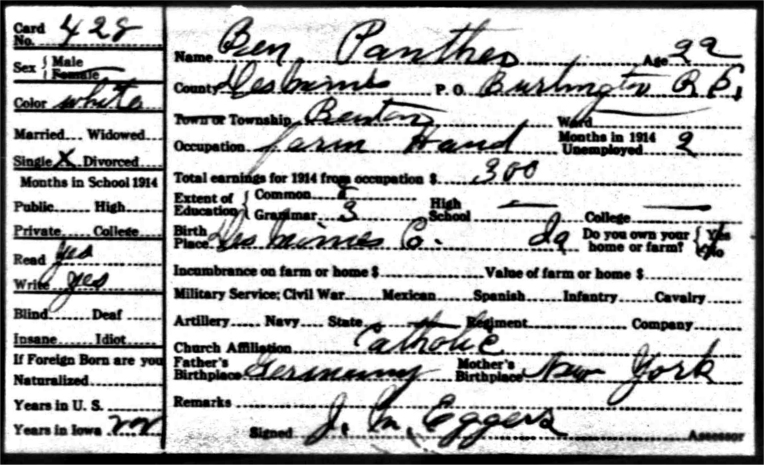 Card No. 428
Sex { Male Female
Color white
Married Widowed
Single X Divorced
Months in School 1914
Public High
Private College
Read yes
Write yes
Blind Deaf
Insane Idiot
If Foreign Born are you
Naturalized
Years in U. S.
Years in Iowa 22
Name Ben Panther Age 22
County Des Moines P. O. Burlington R
Town or Township Benton Ward
Occupation farm Hand Months in 1914 Unemployed 2
Total earnings for 1914 from occupation $ 300
Extent of Education { Common 8 High School — College —
Grammar 3
Birth Place Des Moines Co. Ia Do you own your home or farm? { Yes No
Incumbrance on farm or home $ Value of farm or home $
Military Service; Civil War Mexican Spanish Infantry Cavalry
Artillery Navy State Regiment Company
Church Affiliation Catholic
Father's Birthplace Germany Mother's Birthplace New York
Remarks
Signed J. M. Eggers Assessor